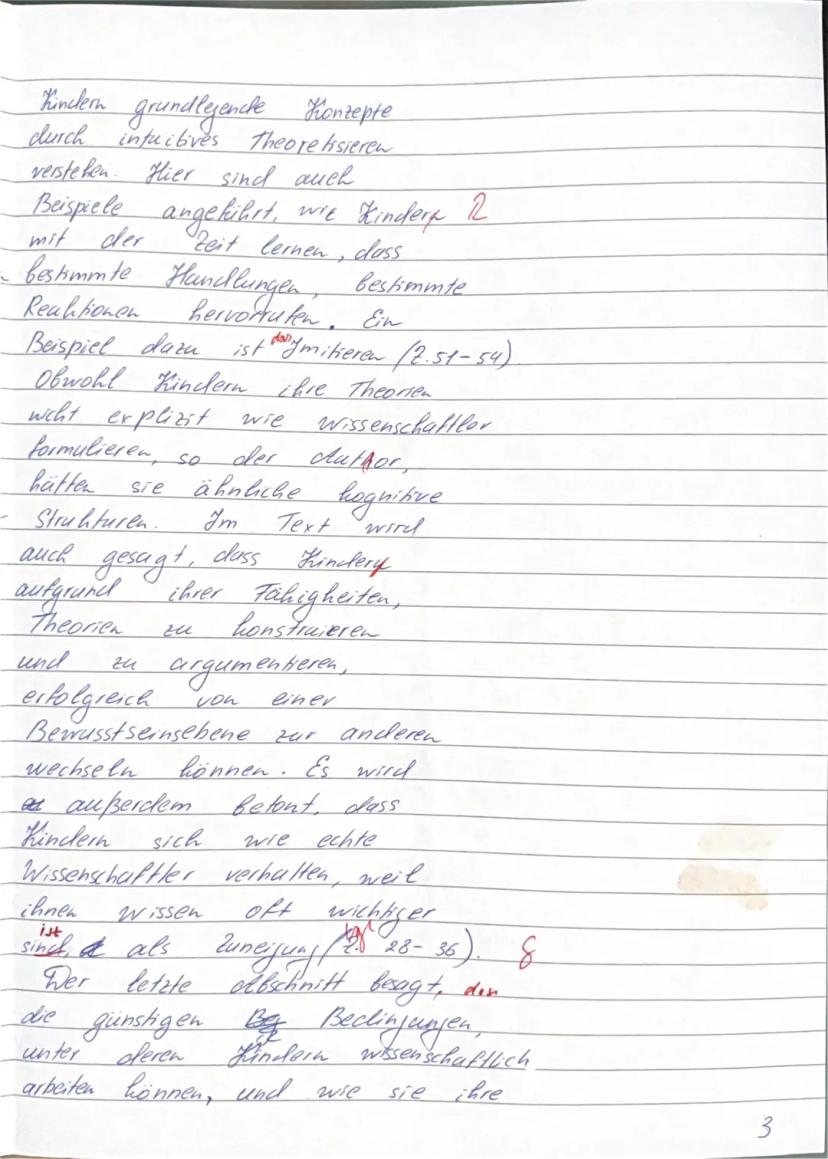 Kindern grundlegende Konzepte
durch intuitives Theoretisieren
verstehen. Hier sind auch
Beispiele angeführt, wie Kindern R
mit der Zeit lernen, dass
bestimmte Handlungen, bestimmte
Reaktionen hervorrufen. Ein
Beispiel dazu ist das Imitieren (Z.51-54).
Obwohl Kindern ihre Theorien
nicht explizit wie Wissenschaftler
formulieren, so der Author,
hätten sie ähnliche kognitive
Strukturen. Im Text wird
auch gesagt, dass Kindern
aufgrund ihrer Fähigkeiten,
Theorien zu konstruieren
und zu argumentieren,
erfolgreich von einer
Bewusstseinsebene zur anderen
wechseln können. Es wird
außerdem betont, dass
Kindern sich wie echte
Wissenschaftler verhalten, weil
ihnen Wissen oft wichtiger
ist
sind, als Zuneigung (Z. 28-36).
Der letzte Abschnitt besagt,
die günstigen Bedingungen,
unter deren Kindern wissenschaftlich
arbeiten können, und wie sie ihre
3